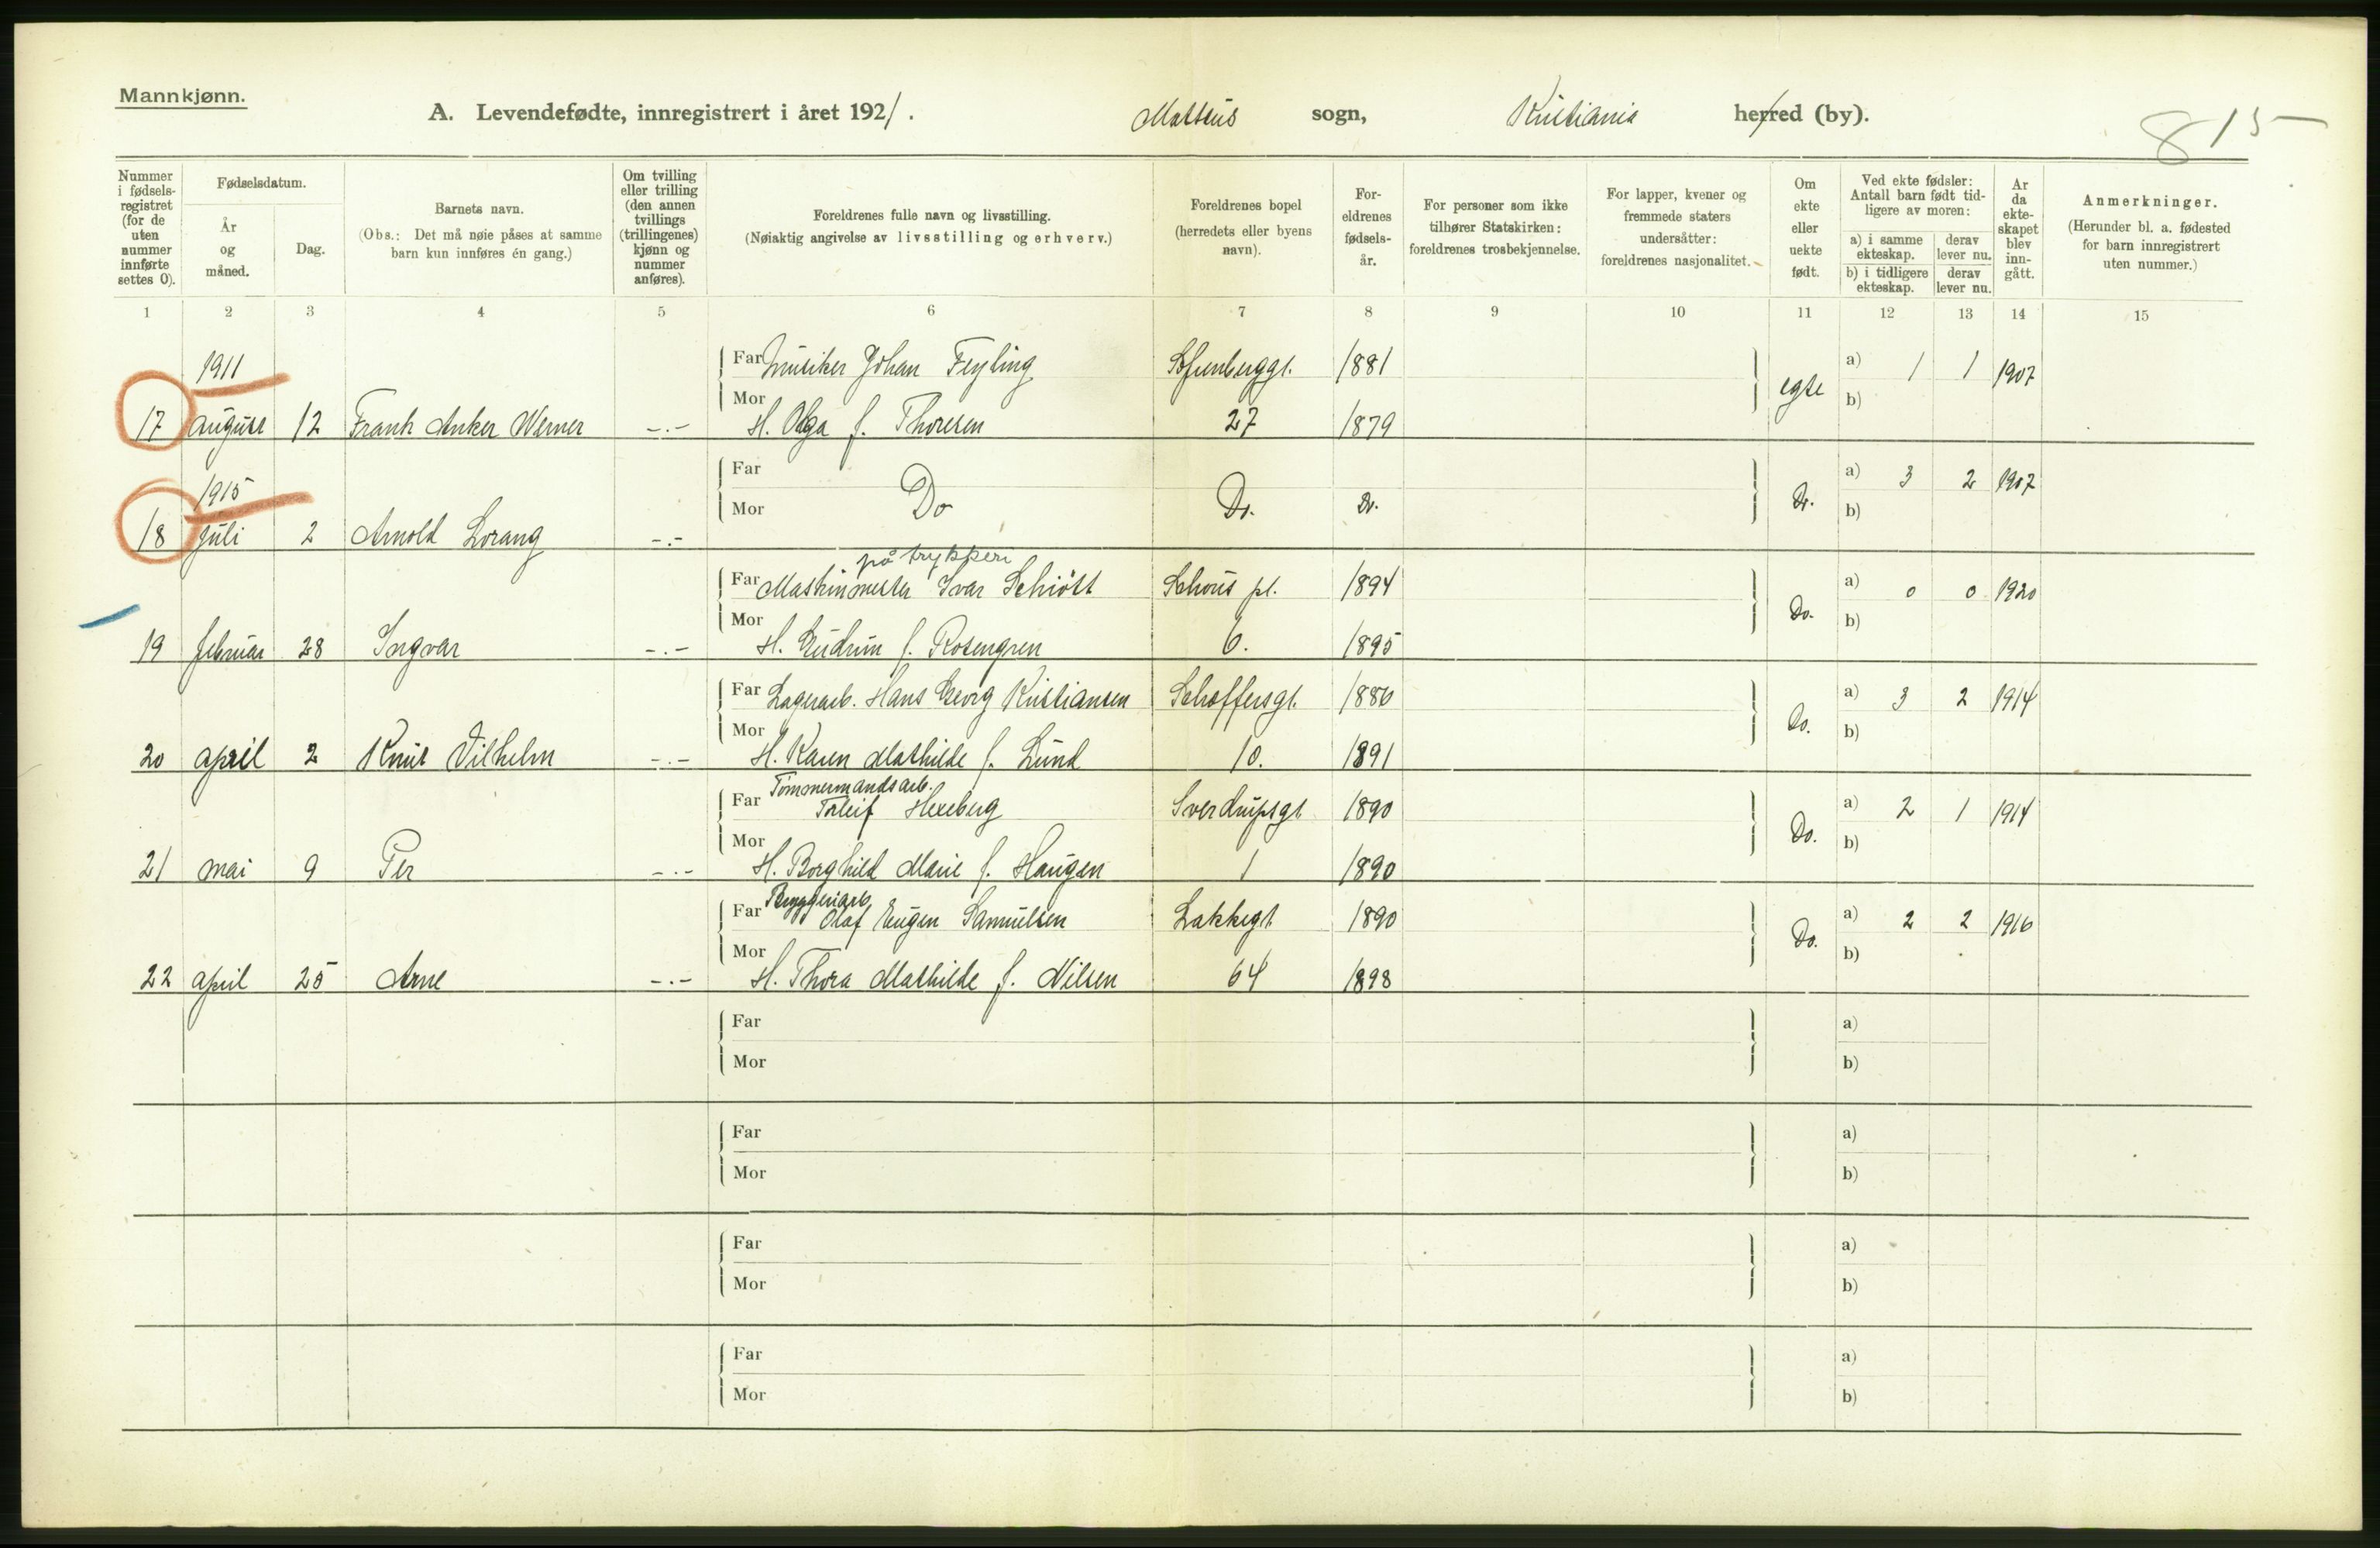 Mannkjønn.
A. Levendefødte, innregistrert i året 1921. Matteus sogn, Kristiania herred (by). 815
Nummer i fødselsregistret (for de uten nummer innførte settes 0).
Fødselsdatum.
År og måned.
Dag.
Barnets navn.
(Obs.: Det må nøie påses at samme barn kun innføres én gang.)
Om tvilling eller trilling (den annen tvillings (trillingenes) kjønn og nummer anføres).
Foreldrenes fulle navn og livsstilling.
(Nøiaktig angivelse av livsstilling og erhverv.)
Foreldrenes bopel (herredets eller byens navn).
Foreldrenes fødselsår.
For personer som ikke tilhører Statskirken: foreldrenes trosbekjennelse.
For lapper, kvener og fremmede staters undersåtter: foreldrenes nasjonalitet.
Om ekte eller uekte født.
Ved ekte fødsler: Antall barn født tidligere av moren:
a) i samme ekteskap. derav lever nu.
b) i tidligere ekteskap. derav lever nu.
År da ekteskapet blev inngått.
Anmerkninger.
(Herunder bl. a. fødested for barn innregistrert uten nummer.)
1 2 3 4 5 6 7 8 9 10 11 12 13 14 15
1911 Far Musiker Johan Feyling Sofienberggt. 1881 egte a) 1 1 1907
17 august 12 Frank Anker Werner -.- Mor H. Olga f. Thoresen 27 1879 b)
1915 Far Do Do. Do. Do. a) 3 2 1907
18 juli 2 Arnold Lorang -.- Mor b)
på trykkeri
Far Maskinmester Ivar Schiött Schous pl. 1894 Do. a) 0 0 1920
19 februar 28 Ingvar -.- Mor H. Gudrun f. Rosengren 6. 1895 b)
Far Lagerarb. Hans Georg Kristiansen Schoffersgt. 1886 Do. a) 3 2 1914
20 april 2 Knut Vilhelm -.- Mor H. Karen Mathilde f. Lund 10. 1891 b)
Tømmermandsarb.
Far Torleif Hexeberg Sverdrupsgt 1890 Do. a) 2 1 1914
21 mai 9 Per -.- Mor H. Borghild Marie f. Haugen 1 1890 b)
Bryggeriarb.
Far Olaf Eugen Samuelsen Lakkegt 1890 Do. a) 2 2 1916
22 april 25 Arne -.- Mor H. Thora Mathilde f. Nilsen 64 1898 b)
Far a)
Mor b)
Far a)
Mor b)
Far a)
Mor b)
Far a)
Mor b)